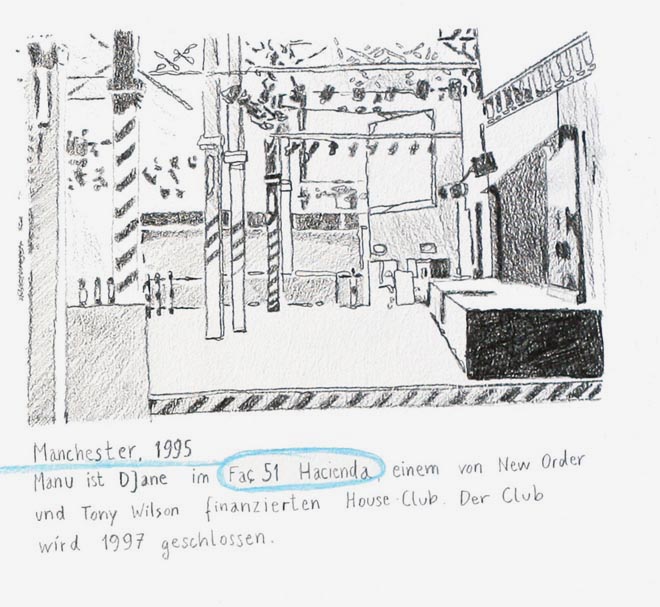 Manchester, 1995
Manu ist DJane im Faç 51 Hacienda, einem von New Order
und Tony Wilson finanzierten House-Club. Der Club
wird 1997 geschlossen.